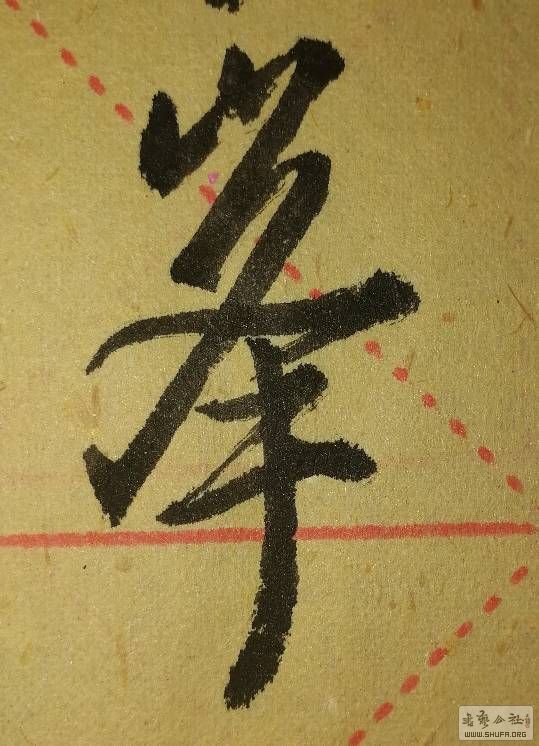 举
书艺公社
WWW.SHUFA.ORG